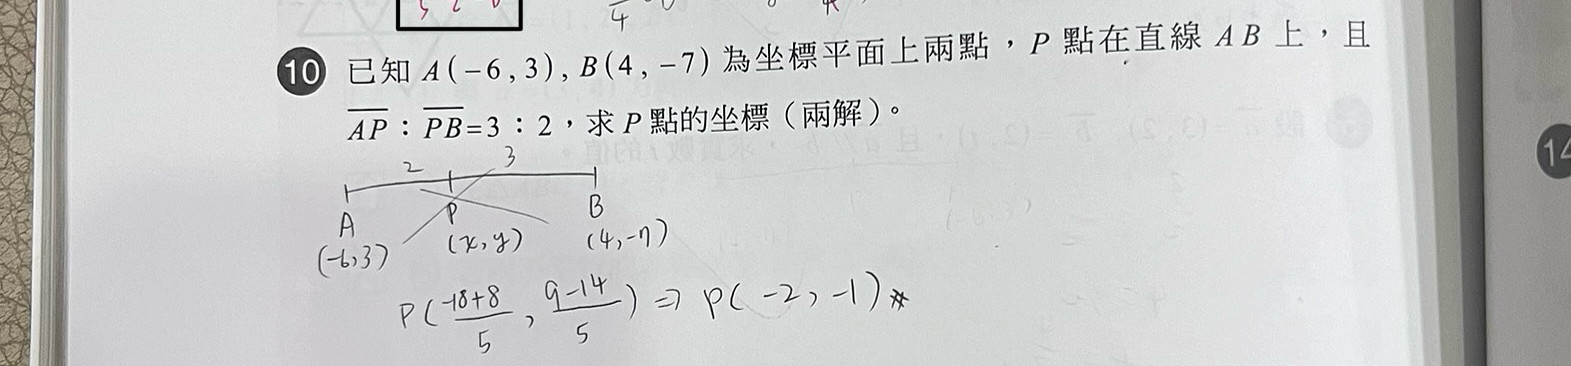 10 已知 A(−6,3), B(4,−7) 為坐標平面上兩點，P 點在直線 AB 上，且
AP：PB=3：2，求 P 點的坐標（兩解）。
2 3
A P B
(-6,3) (x,y) (4,-7)
P(-18+8/5, 9-14/5) ⇒ P(-2,-1)
14